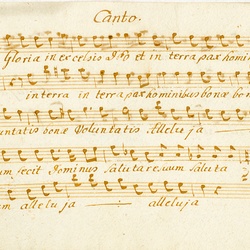 Canto.
Gloria in excelsis Deo et in terra pax homi
in terra in terra pax hominibus bonae bo
untatis bonae Voluntatis Alleluja
um fecit Dominus Salutare suum Saluta
um alleluja alleluja